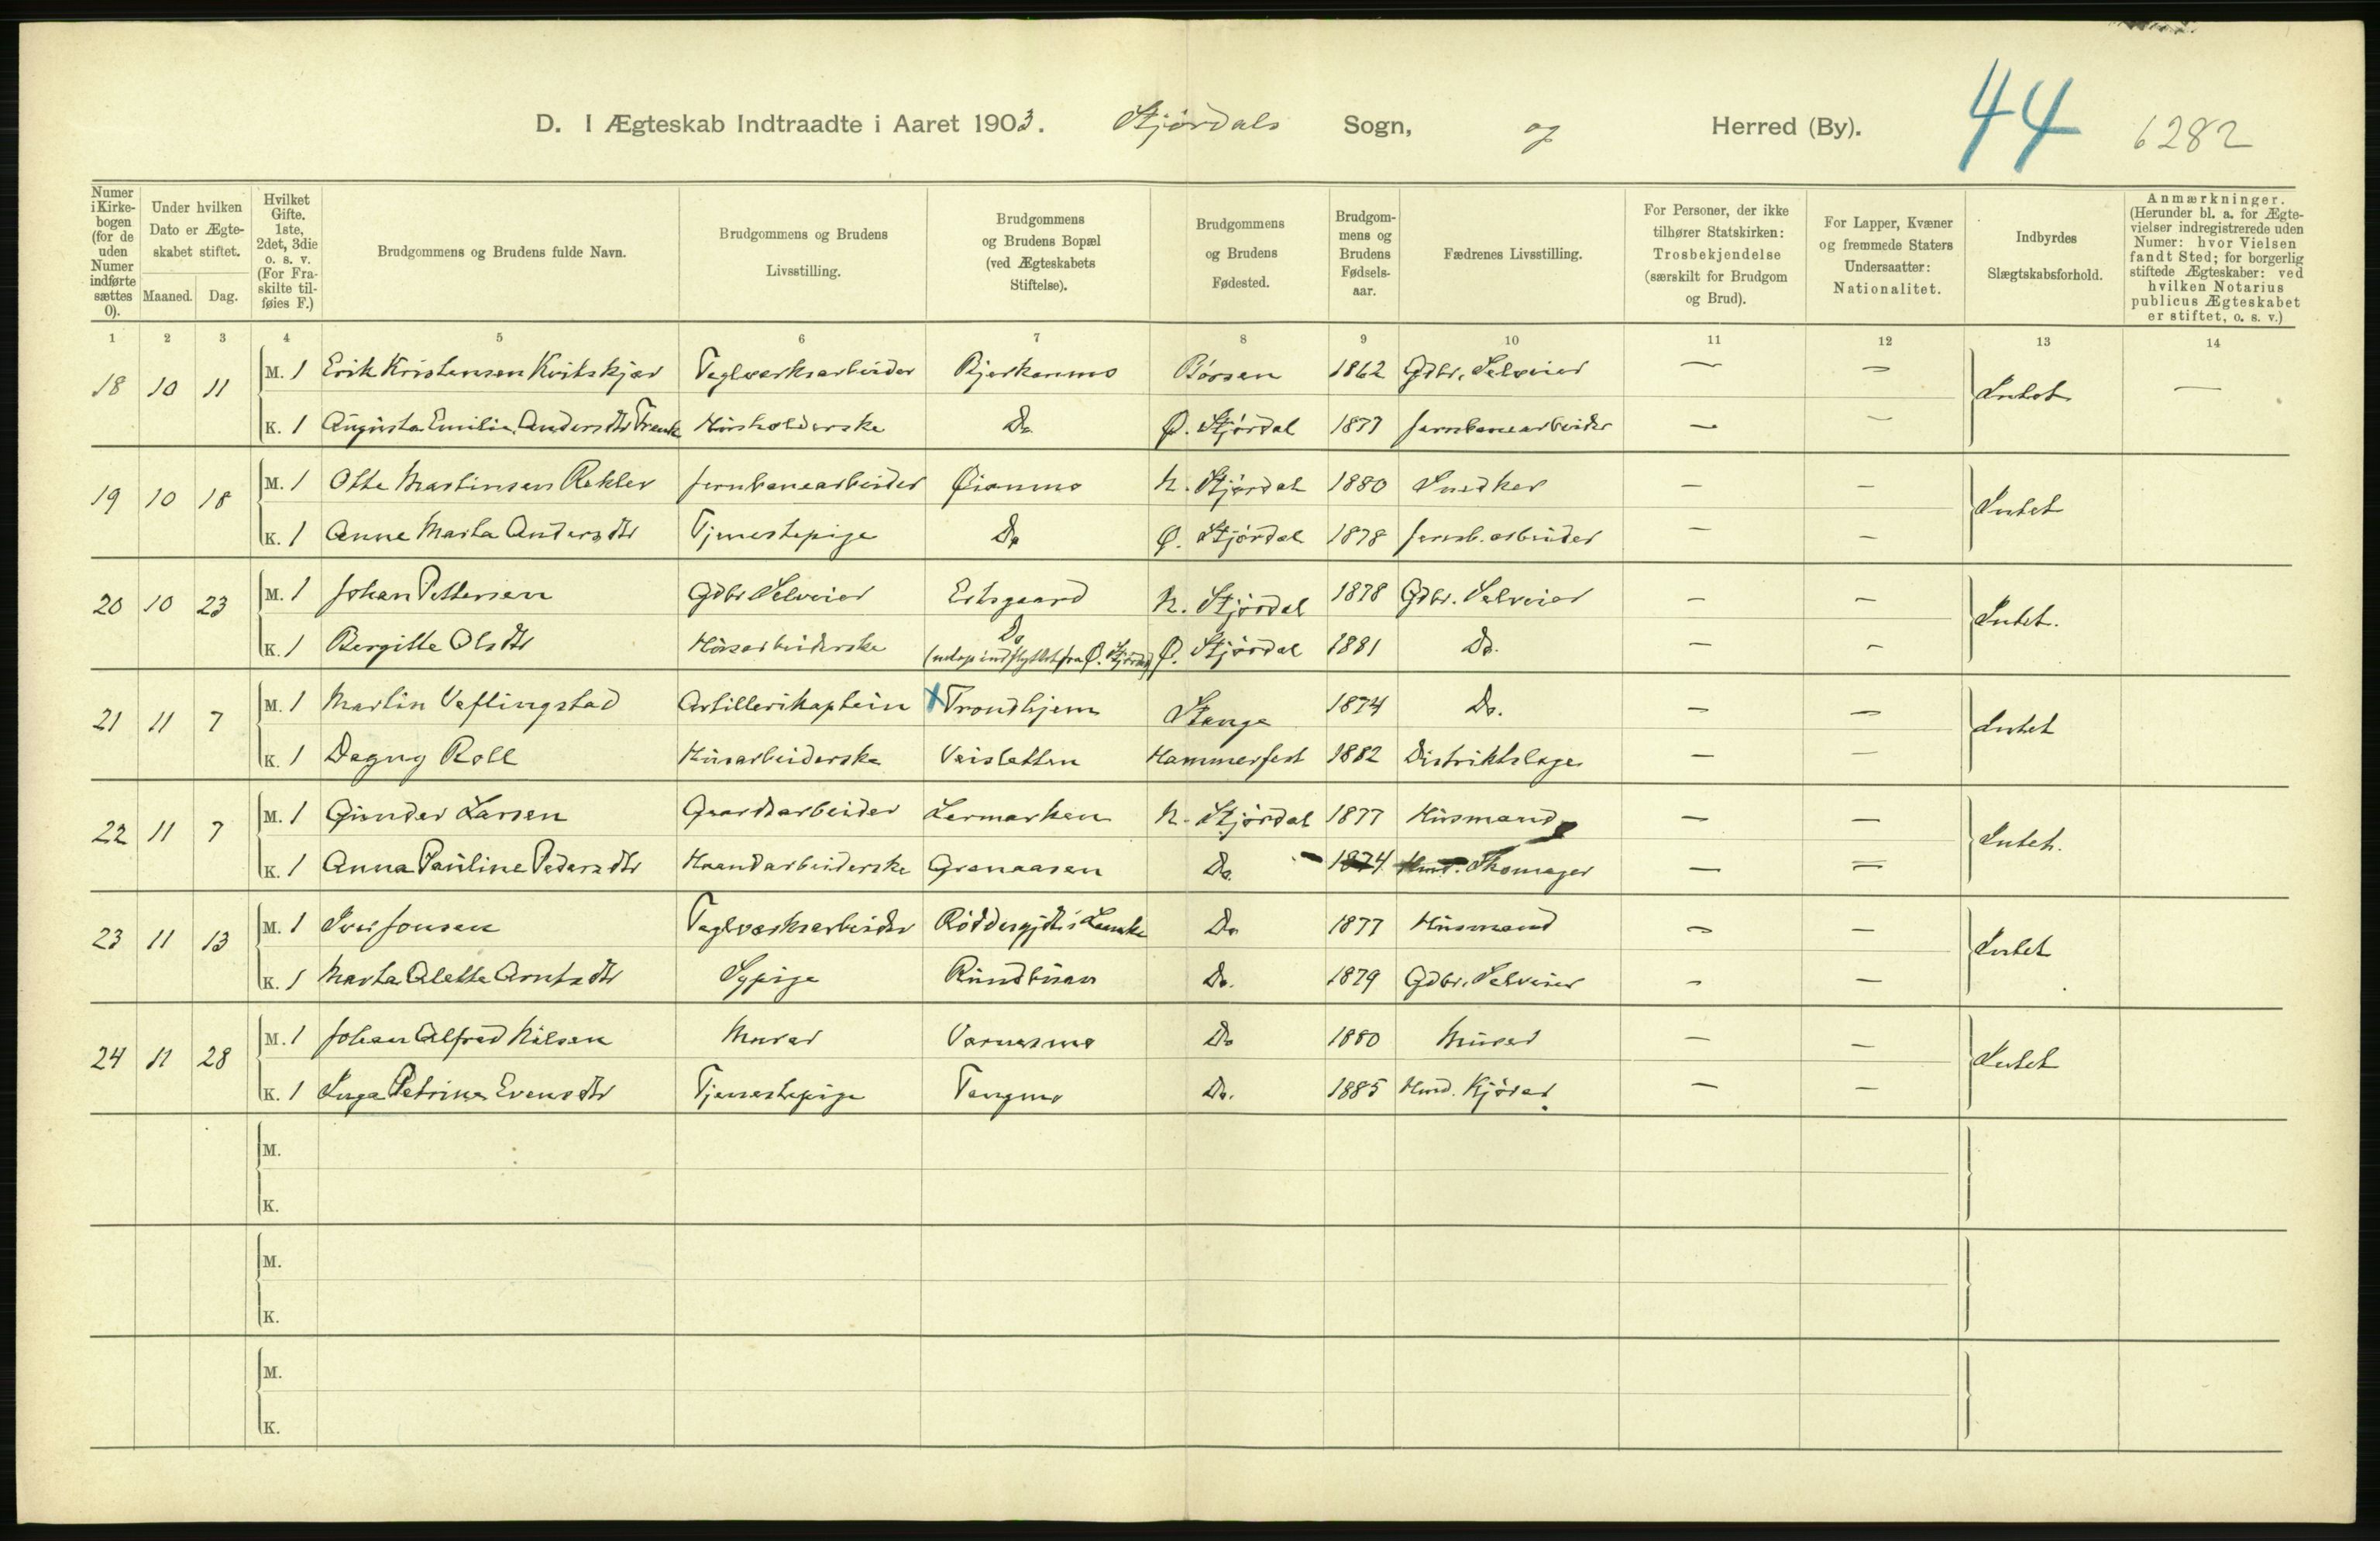 44
D. I Ægteskab Indtraadte i Aaret 1903. Stjørdals Sogn, og Herred (By). 6282
Numer i Kirkebogen (for de uden Numer indførte sættes 0).
Under hvilken Dato er Ægteskabet stiftet.
Maaned. Dag.
Hvilket Gifte. 1ste, 2det, 3die o. s. v. (For Fraskilte tilføies F.)
Brudgommens og Brudens fulde Navn.
Brudgommens og Brudens Livsstilling.
Brudgommens og Brudens Bopæl (ved Ægteskabets Stiftelse).
Brudgommens og Brudens Fødested.
Brudgommens og Brudens Fødselsaar.
Fædrenes Livsstilling.
For Personer, der ikke tilhører Statskirken: Trosbekjendelse (særskilt for Brudgom og Brud).
For Lapper, Kvæner og fremmede Staters Undersaatter: Nationalitet.
Indbyrdes Slægtskabsforhold.
Anmærkninger. (Herunder bl. a. for Ægtevielser indregistrerede uden Numer: hvor Vielsen fandt Sted; for borgerlig stiftede Ægteskaber: ved hvilken Notarius publicus Ægteskabet er stiftet, o. s. v.)
1 2 3 4 5 6 7 8 9 10 11 12 13 14
18 10 11 M. 1 Erik Kristensen Kvitskjær Teglverksarbeider Bjerkanmo Børsen 1862 Gdbr. Selveier — — Intet —
K. 1 Augusta Emilie Andersdtr Husholderske Do. Ø. Stjørdal 1877 Jernbanearbeider — —
19 10 18 M. 1 Otte Martinsen Rekler Jernbanearbeider Øianmo N. Stjørdal 1880 Snedker — — Intet
K. 1 Anne Marta Andersdtr Tjenestepige Do Ø. Stjørdal 1878 Jernb. arbeider — —
20 10 23 M. 1 Johan Pettersen Gdbr Selveier Ertsgaard N. Stjørdal 1878 Gdbr. Selveier — — Intet.
K. 1 Bergitte Olsdtr Husarbeiderske Do (netop indflyttet fra Ø. Stjørdal) Ø. Stjørdal 1881 Do. — —
21 11 7 M. 1 Martin Veflingstad Artillerikaptein X Trondhjem Stange 1874 Do. — — Intet
K. 1 Dagny Roll Husarbeiderske Veisletten Hammerfest 1882 Distriktslæge — —
22 11 7 M. 1 Gunder Larsen Gaardsarbeider Lermarken N. Stjørdal 1877 Husmand — — Intet.
K. 1 Anna Pauline Pedersdtr Haandarbeiderske Grenaasen Do. 1874 Hmd. Skomager — —
23 11 13 M. 1 Iver Jonsen Teglværksarbeider Laanke Do. 1877 Husmand — — Intet
K. 1 Marta Alette Arntsdtr Sypige Rundbuan Do. 1879 Gdbr. Selveier — —
24 11 28 M. 1 Johan Alfred Nilsen Murer Værnesmo Do 1880 Murer — — Intet
K. 1 Inga Petrine Evensdtr Tjenestepige Tangmo Do. 1885 Hmd. Kjører — —
M.
K.
M.
K.
M.
K.